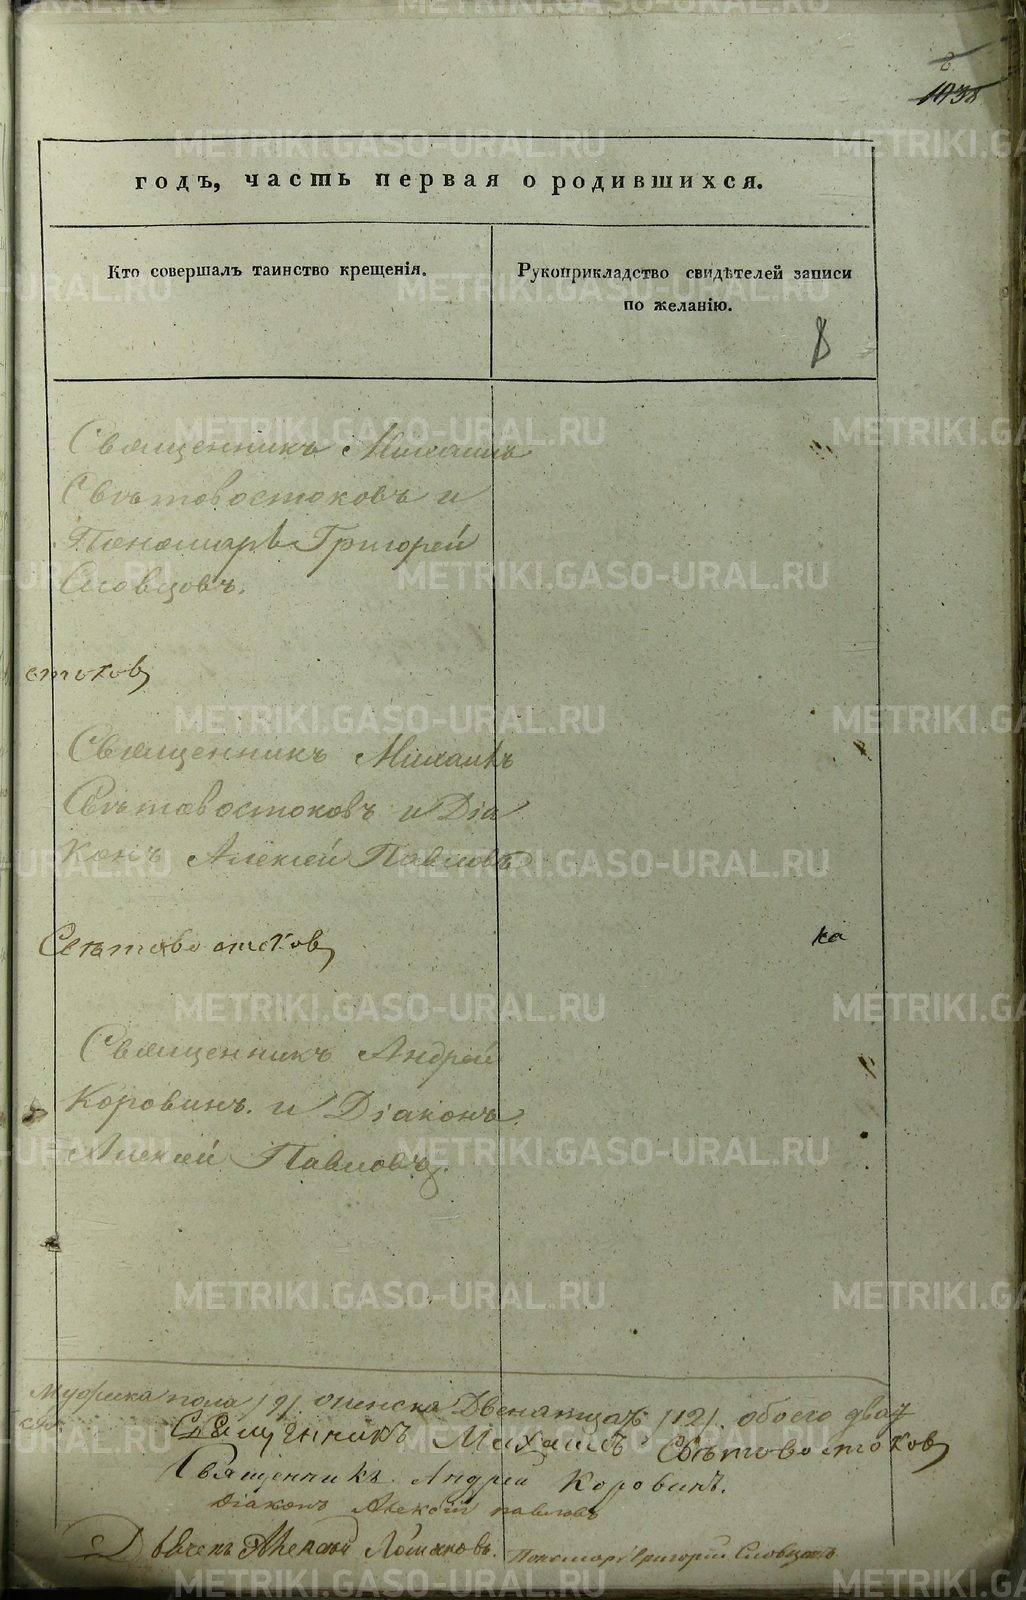 2.
1038
годъ, часть первая о родившихся.
Кто совершалъ таинство крещенія.
Рукоприкладство свидѣтелей записи
по желанію.
8
Священникъ Михаилъ
Свѣтовостоковъ и
Пономарь Григорей
Словцовъ.
стоковъ
Священникъ Михаилъ
Свѣтовостоковъ и Діа
конъ Алексей Павловъ
Свѣтовостоковъ
ка
Священникъ Андрей
Коровинъ. и Діаконъ
Алексей Павловъ.
Мужеска пола /9/ женска Двенатцать /12/ обоего двад
Священникъ Михаилъ Свѣтовостоковъ
Священникъ Андрей Коровинъ.
Діаконъ Алексій Павловъ
Дьячекъ Алексѣй
Пономарь Григорій Словцовъ
METRIKI.GASO-URAL.RU